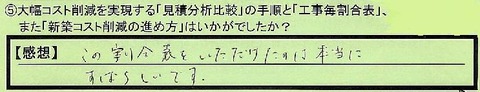 ⑤大幅コスト削減を実現する「見積分析比較」の手順と「工事毎割合表」、
また「新築コスト削減の進め方」はいかがでしたか?
【感想】この割合表をいただけたのは本当に
すばらしいです.